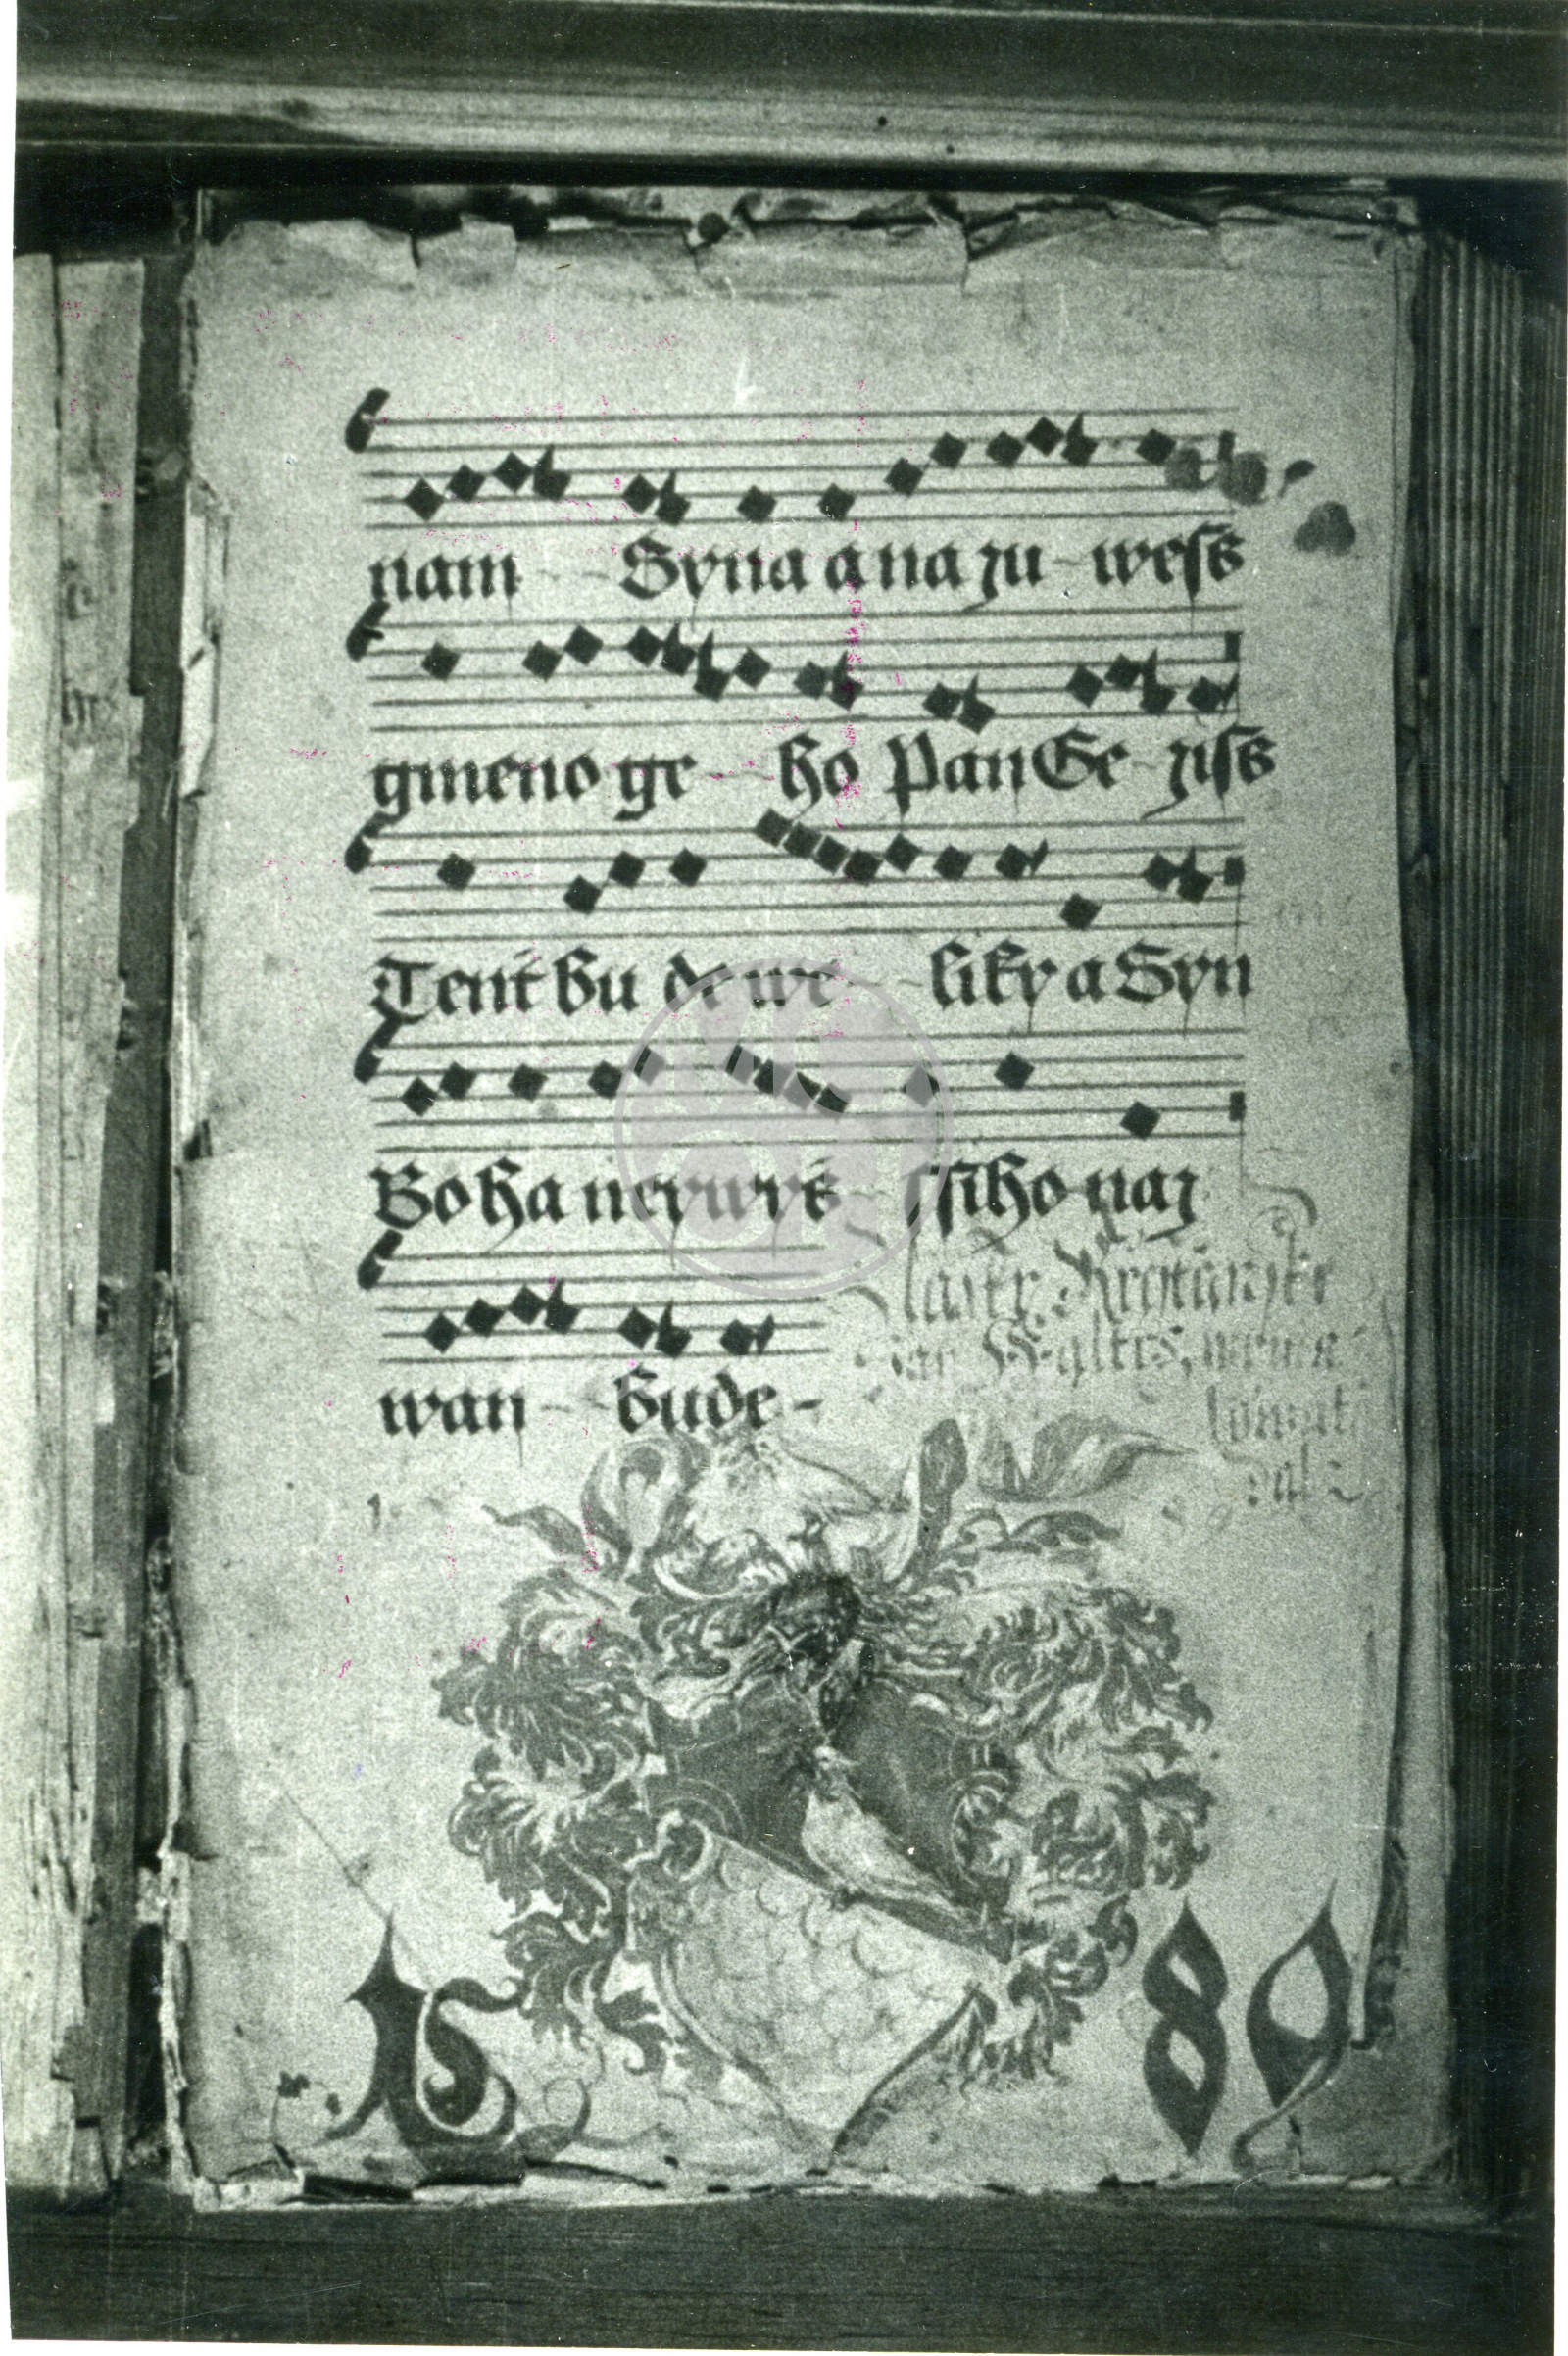 nam - - Syna a na zu - weſs
gmeno ge - - ho Pan Ge - ziſs
Tent bu de we - - liky a Syn
Boha neywyš - ſſiho naz
wan - - bude -
1589